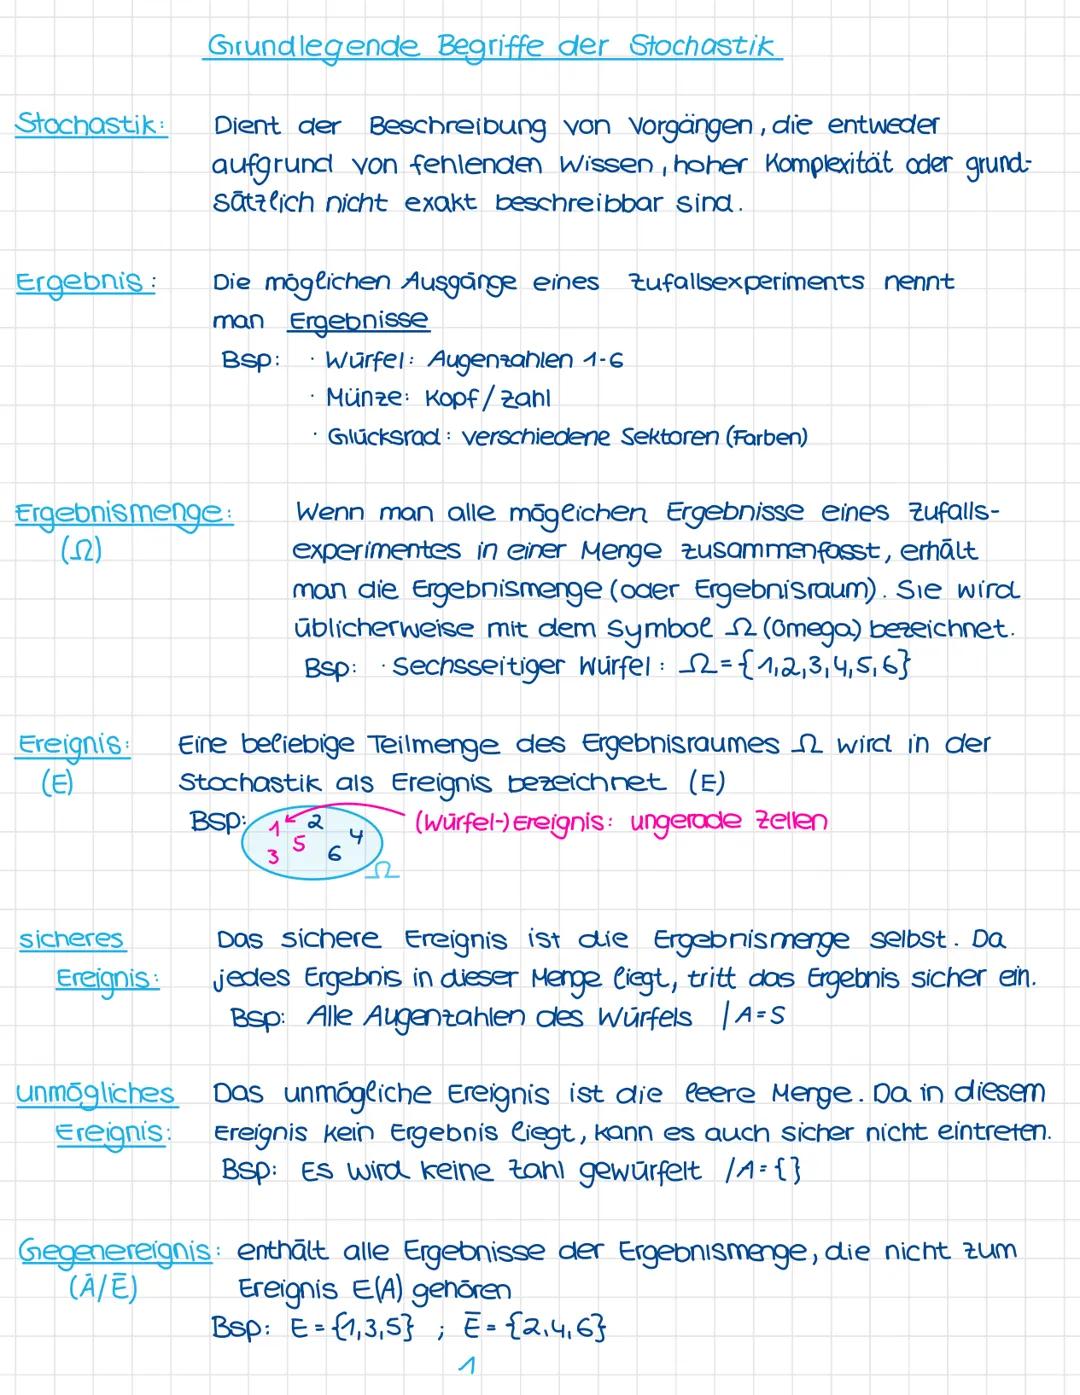 Grundlegende Begriffe der Stochastik
Stochastik: Dient der Beschreibung von Vorgängen, die entweder
aufgrund von fehlenden Wissen, hoher Komplexität oder grund-
sätzlich nicht exakt beschreibbar sind.
Ergebnis: Die möglichen Ausgänge eines Zufallsexperiments nennt
man Ergebnisse
Bsp: · Würfel: Augenzahlen 1-6
· Münze: Kopf/Zahl
· Glücksrad: verschiedene Sektoren (Farben)
Ergebnismenge: Wenn man alle möglichen Ergebnisse eines Zufalls-
(Ω) experimentes in einer Menge zusammenfasst, erhält
man die Ergebnismenge (oder Ergebnisraum). Sie wird
üblicherweise mit dem Symbol Ω (Omega) bezeichnet.
Bsp: · Sechsseitiger Würfel: Ω={1,2,3,4,5,6}
Ereignis: Eine beliebige Teilmenge des Ergebnisraumes Ω wird in der
(E) Stochastik als Ereignis bezeichnet (E)
Bsp: 1 2 4 (Würfel-) Ereignis: ungerade Zellen
3 5 6
Ω
sicheres Das sichere Ereignis ist die Ergebnismenge selbst. Da
Ereignis: jedes Ergebnis in dieser Menge liegt, tritt das Ergebnis sicher ein.
Bsp: Alle Augenzahlen des Würfels / A=S
unmögliches Das unmögliche Ereignis ist die leere Menge. Da in diesem
Ereignis: Ereignis kein Ergebnis liegt, kann es auch sicher nicht eintreten.
Bsp: Es wird keine Zahl gewürfelt /A={}
Gegenereignis: enthält alle Ergebnisse der Ergebnismenge, die nicht zum
(Ā/Ē) Ereignis E(A) gehören
Bsp: E={1,3,5} ; Ē={2,4,6}
1